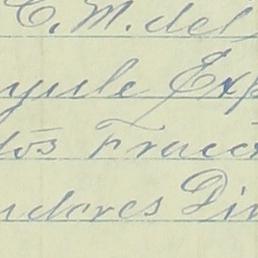 C. M. del
yule Exp
dos Fracc
adores Din